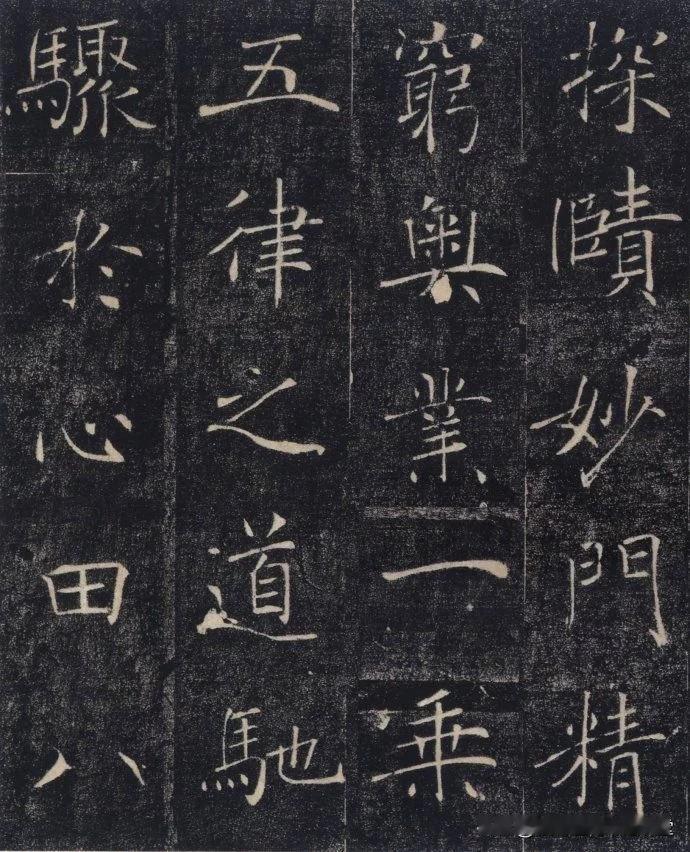 探賾妙門精
窮奧業一乗
五律之道馳
驟於心田八